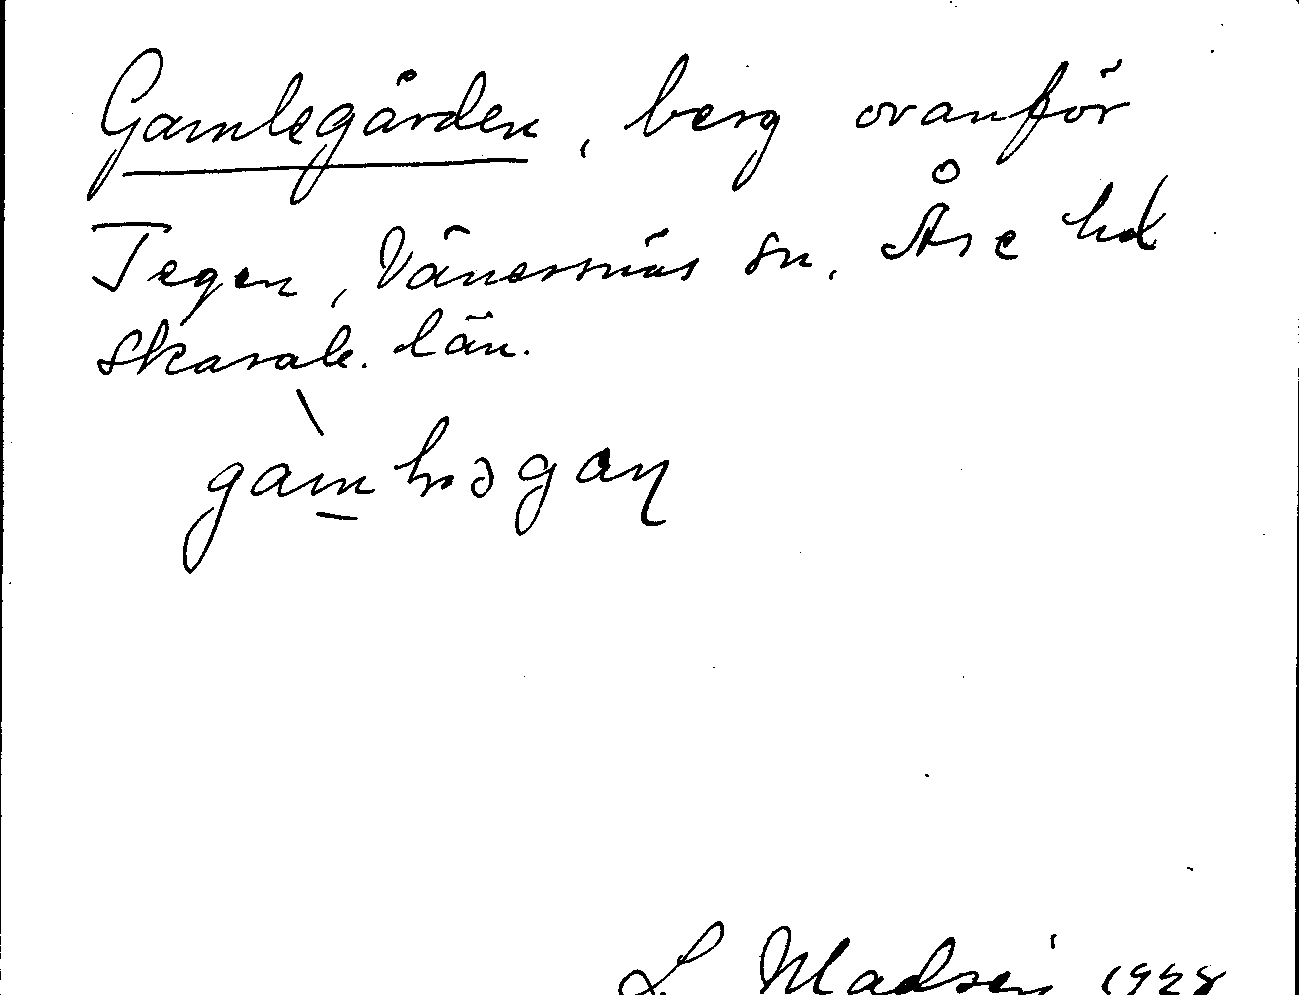 Gamlegården, berg ovanför
Tegen, Vänersnäs sn. Åse hd
Skarab. län.
L Madsén 1928